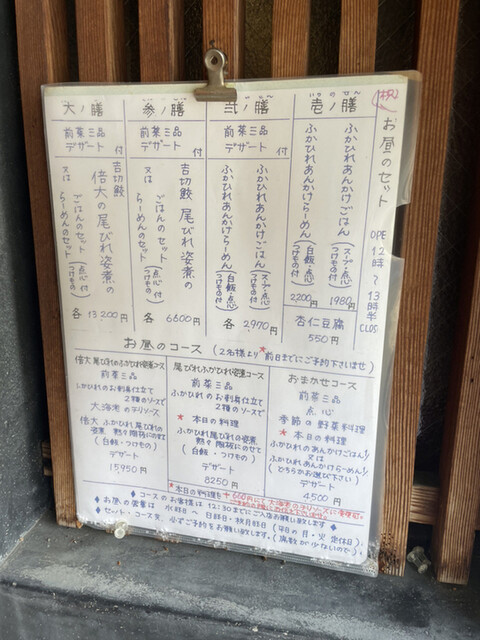 お昼のセット OPE 12時〜13時半 CLOSE
壱ノ膳
ふかひれあんかけごはん(スープ・点心つけもの付) 1980円
ふかひれあんかけらーめん(白飯・点心つけもの付) 2,200円
杏仁豆腐 550円
弐ノ膳
前菜三品
デザート 付
ふかひれあんかけごはん(スープ・点心つけもの付)
又は
ふかひれあんかけらーめん(白飯・点心つけもの付)
各 2,970円
参ノ膳
前菜三品
デザート 付
吉切鮫 尾びれ姿煮の
ごはんのセット(点心つけもの付)
又は
らーめんのセット
各 6600円
大ノ膳
前菜三品
デザート 付
吉切鮫 倍大の尾びれ姿煮の
ごはんのセット(点心つけもの付)
又は
らーめんのセット
各 13200円
お昼のコース (2名様より *前日までにご予約下さいませ)
倍大尾びれのふかひれ姿煮コース
前菜三品
ふかひれのお刺身仕立て
2種のソースで
大海老のチリソース
倍大 ふかひれ尾びれの
姿煮 熱々陶板にのせて
(白飯・つけもの)
デザート
15950円
尾びれふかひれ姿煮コース
前菜三品
ふかひれのお刺身仕立て
2種のソースで
* 本日の料理
ふかひれ尾びれの姿煮
熱々陶板にのせて
(白飯・つけもの)
デザート
8250円
おまかせコース
前菜三品
点心
季節の野菜料理
* 本日の料理
ふかひれのあんかけごはん
又は
ふかひれあんかけらーめん
(どちらかお選び下さい)
デザート
4,500円
*本日の料理を+660円にて大海老のチリソースに変更可
◆ コースのお客様は 12:30までにご入店お願い致します ◆
◆ お昼の営業は 水曜日〜日曜日・祝日 (平日の月・火 定休日)
セット・コース共 必ずご予約をお願い致します。(席数が少ないので)